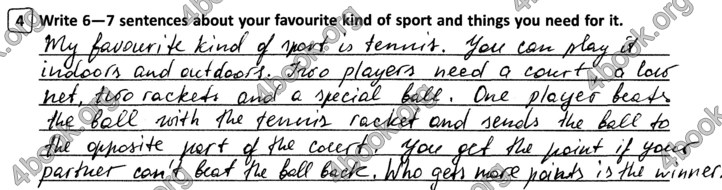 4 Write 6—7 sentences about your favourite kind of sport and things you need for it.
My favourite kind of sport is tennis. You can play it
indoors and outdoors. Two players need a court, a low
net, two rackets and a special ball. One player beats
the ball with the tennis racket and sends the ball to
the opposite part of the court. You get the point if your
partner can't beat the ball back. Who gets more points is the winner.
4book.org